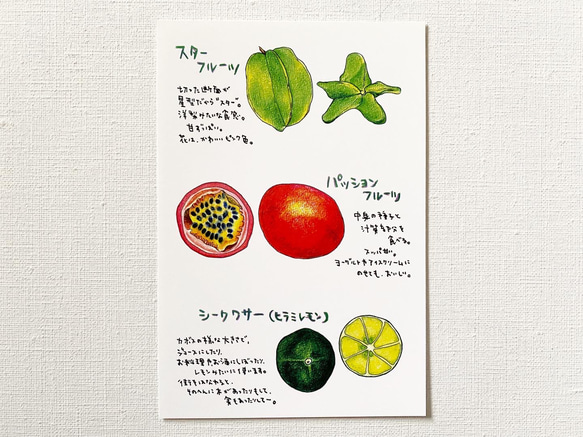 スター
フルーツ
切った断面が
星型だから"スター"。
洋梨みたいな食感。
甘ずっぱい。
花は、かわいいピンク色。
パッション
フルーツ
中央の種子と
汁質部分を
食べる。
スッパ甘い。
ヨーグルトやアイスクリームに
のせても、おいしい。
シークワサー(ヒラミレモン)
カボスの様な大きさで、
ジュースにしたり、
お料理やお酒にしぼったり、
レモンみたいに使います。
街をはなれると、
そのへんに木があったりもして、
実もあったりして〜。